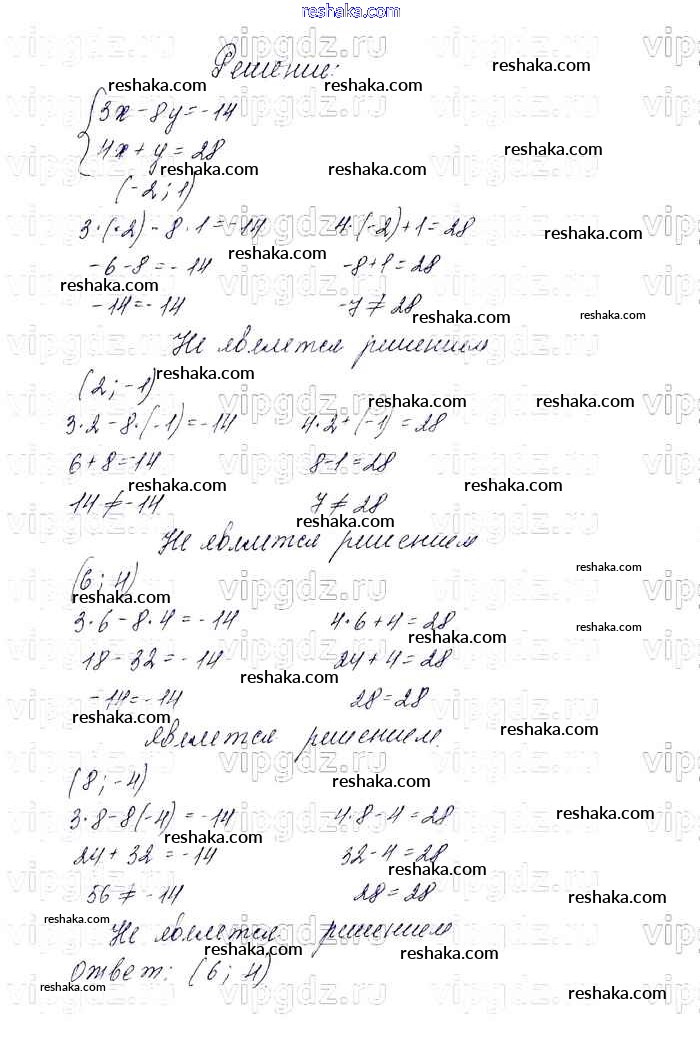 reshaka.com
Решение:
{3x - 8y = -14
4x + y = 28
(-2; 1)
3·(-2) - 8·1 = -14    4·(-2)+1 = 28
-6-8 = -14    -8+1 = 28
-14 = -14    -7 ≠ 28
Не является решением
(2; -1)
3·2 - 8·(-1) = -14    4·2+(-1) = 28
6+8 = -14    8-1 = 28
14 ≠ -14    7 ≠ 28
Не является решением
(6; 4)
3·6 - 8·4 = -14    4·6+4 = 28
18 - 32 = -14    24+4 = 28
-14 = -14    28 = 28
является решением.
(8; -4)
3·8 - 8(-4) = -14    4·8 - 4 = 28
24 + 32 = -14    32 - 4 = 28
56 ≠ -14    28 = 28
Не является решением
Ответ: (6; 4)